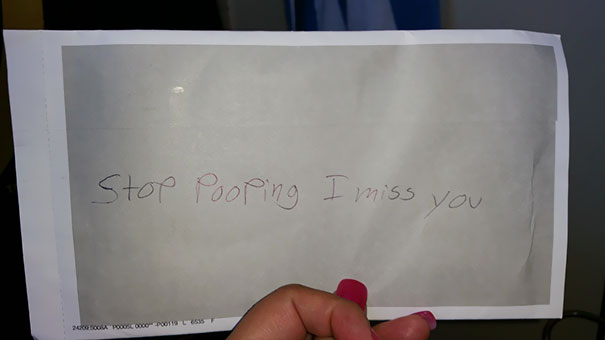 Stop Pooping I miss you
24209 5008A P0005L0000** P00119 L 6535 F